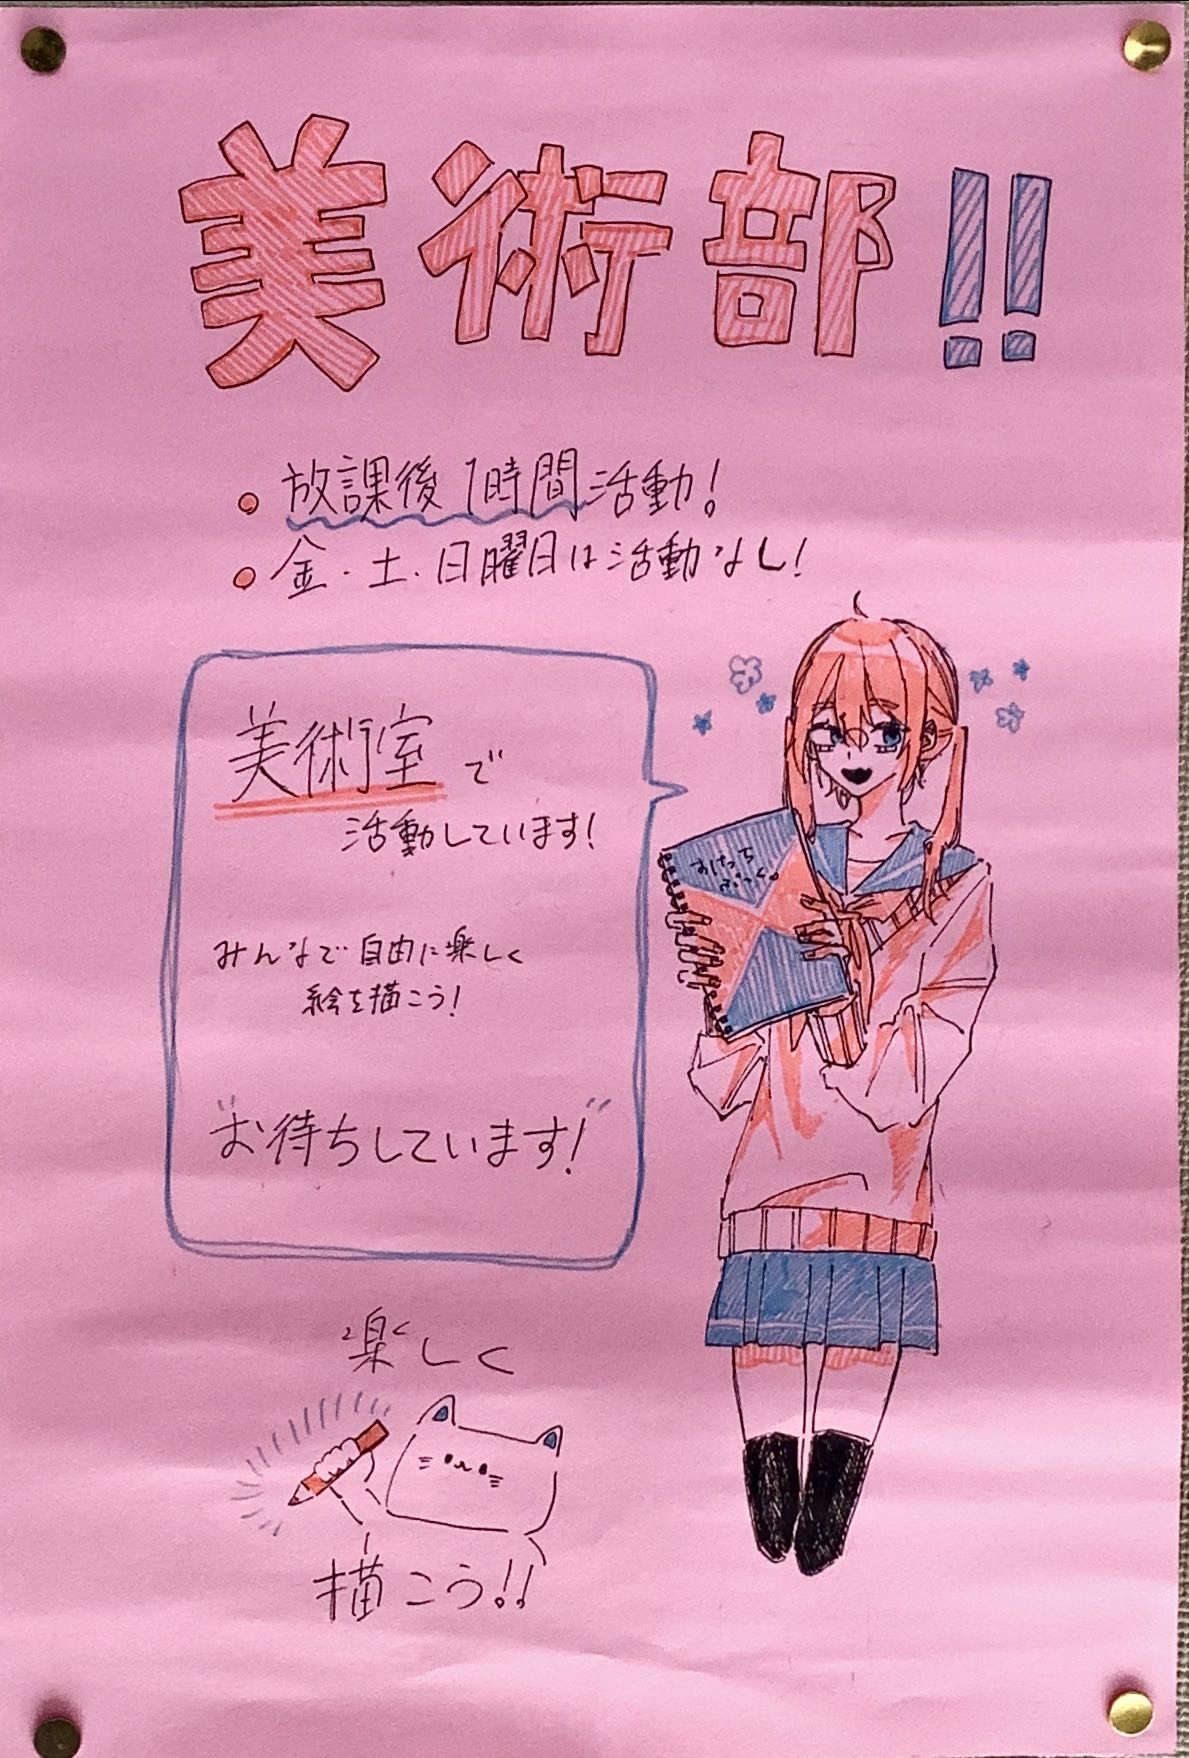 美術部!!
放課後1時間活動!
金・土・日曜日は活動なし!
美術室で
活動しています!
すけっち
ぶっく。
みんなで自由に楽しく
絵を描こう!
"お待ちしています!"
楽しく
描こう!!